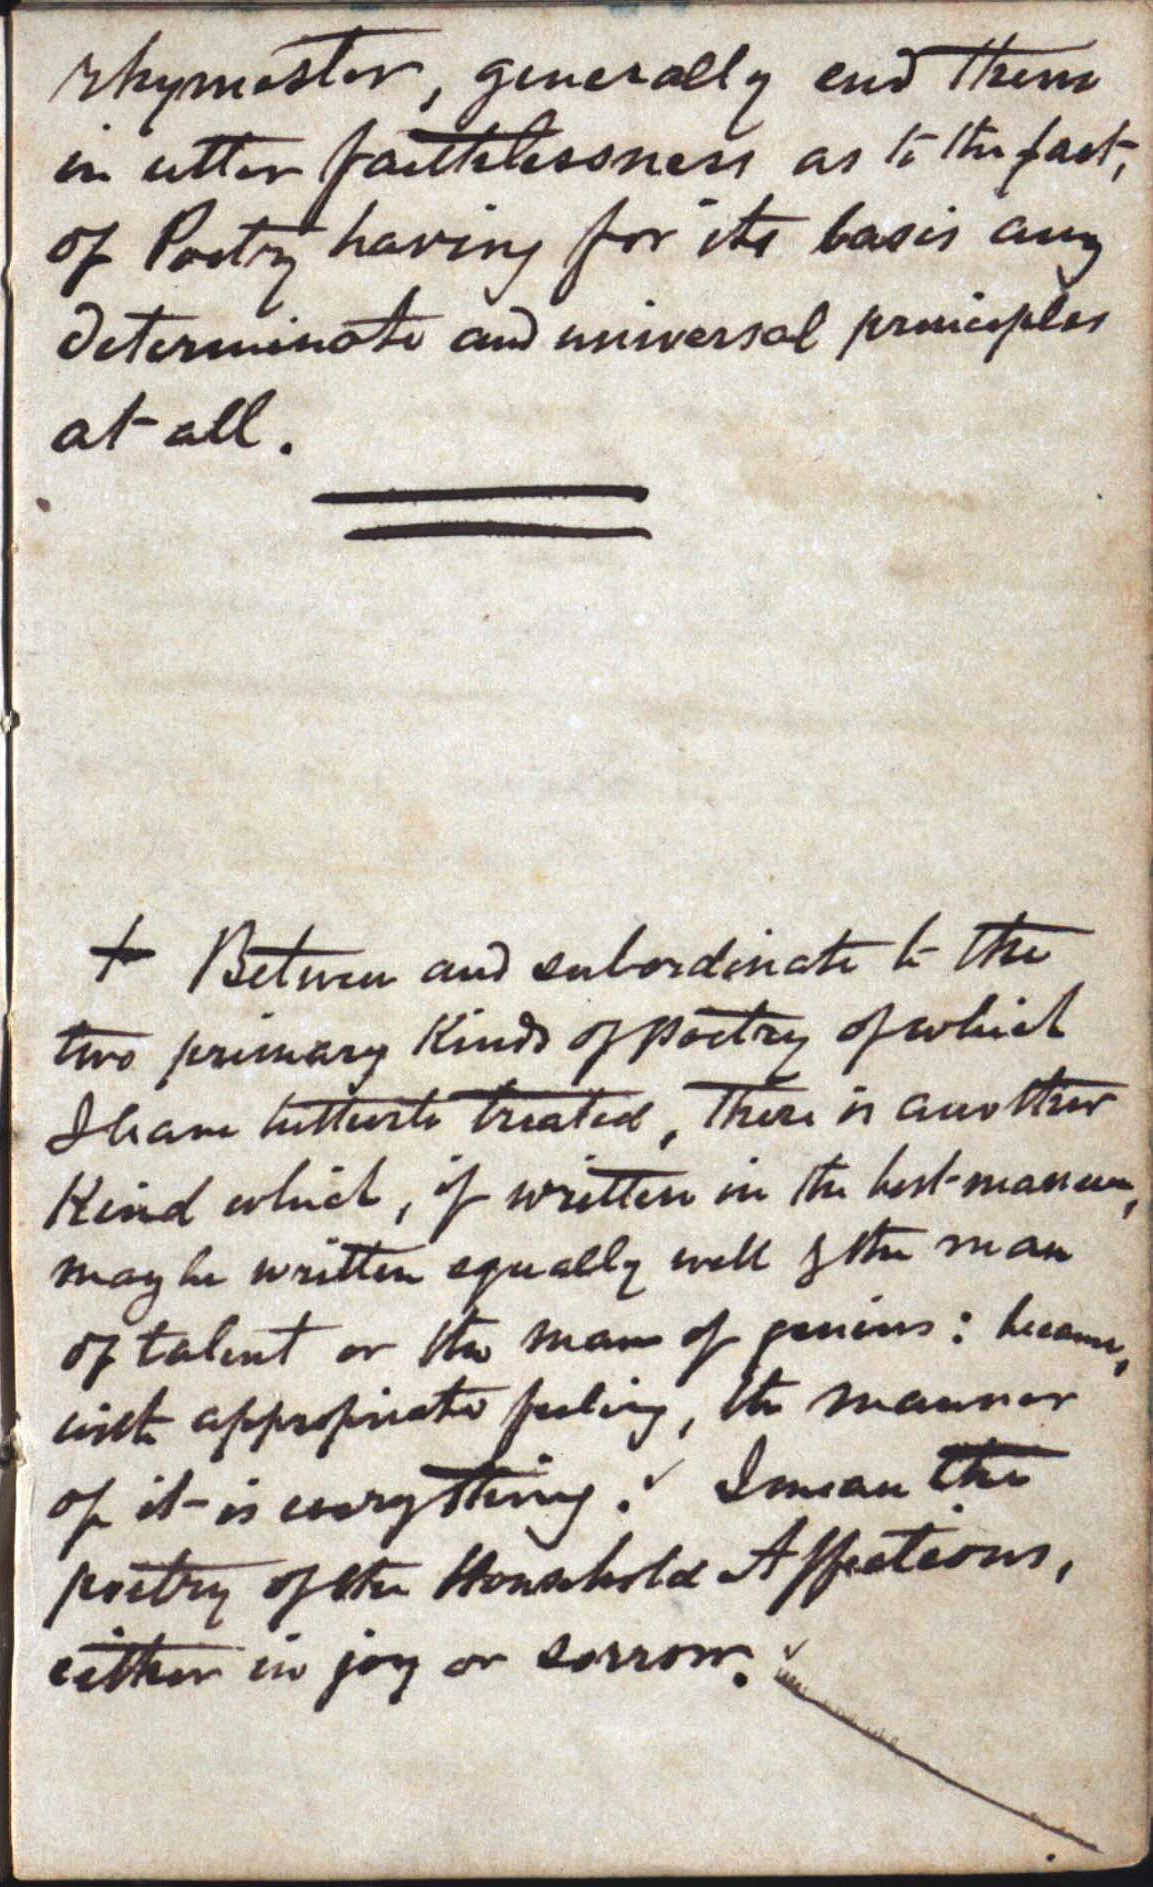 rhymester, generally end them
in utter faithlessness as to the fact,
of Poetry having for its basis any
determinate and universal principles
at all.
+ Between and subordinate to the
two primary Kinds of poetry of which
I have hitherto treated, there is another
Kind which, if written in the best manner,
may be written equally well by the man
of talent or the man of genius: because,
with appropriate feeling, the manner
of it is everything. I mean the
poetry of the Household Affections,
either in joy or sorrow.